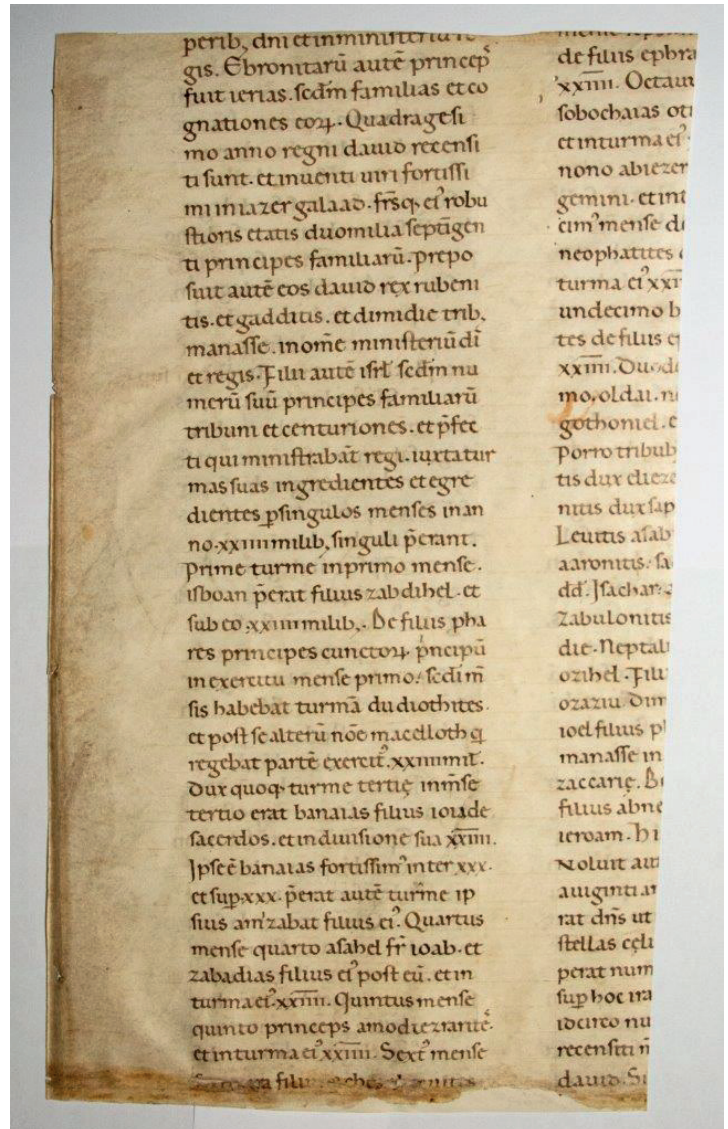 perib; dni et inministeriu re
gis. Ebronitarū autē princep
fuit ierias. scdm familias et co
gnationes eoꝝ. Quadragesi
mo anno regni dauid recensi
ti sunt. et inuenti uiri fortissi
mi in iazer galaad. frsq; ei' robu
stioris etatis duo milia septīgen
ti principes familiarū. prepo
suit autē eos dauid rex rubeni
tis. et gadditis. et dimidie trib;
manasse. in om̄e ministeriū dī
et regis. Filii autē isrl̄ scdm nu
merū suū principes familiarū
tribuni et centuriones. et p̄fec
ti qui ministrabāt regi. iuxta tur
mas suas ingredientes et egre
dientes ꝑ singulos menses in an
no. xxiiii milib; singuli p̄erant.
Prime turme in primo mense.
isboan p̄erat filius zabdihel. et
sub eo. xxiiii milib;. De filiis pha
res princeps cunctoꝝ. pncipū
in exercitu mense primo. scdi m̄
sis habebat turmā dudiothites.
et post se alterū nōe macelloth q
regebat partē exercit'. xxiiii mil̄.
Dux quoq; turme tertię in m̄se
tertio erat banaias filius ioiade
sacerdos. et in diuisione sua xxiiii.
Ipse ē banaias fortissim' inter xxx.
et sup. xxx. p̄erat autē turme ip
sius amizabat filius ei'. Quartus
mense quarto asahel fr̄ ioab. et
zabadias filius ei' post eū. et in
turma ei'. xxiiii. Quintus mense
quinto princeps
et in turma ei' xxiiii. Sext' mense
filius
de filiis ephra
xxiiii. Octauu
sobochaias
et in turma ei'
nono abiezer
gemini. et in
cim' mense de
neophatites
turma ei' xxii
undecimo b
tes de filiis e
xxiiii. Duode
mo. oldai. n
gothoniel. e
Porro tribub
tis dux elieze
nitis dux sap
Leuitis asab
aaronitis. sa
dd̄. Isachar.
Zabulonitis
die. Neptali
ozihel. Filii
ozaziu. Dim
ioel filius p
manasse in
zaccarię. Be
filius abne
ieroam. hi
Noluit aut
a uiginti an
rat dn̄s ut
stellas cęli
perat num
sup hoc ira
idcirco nu
recensiti
dauid. Si